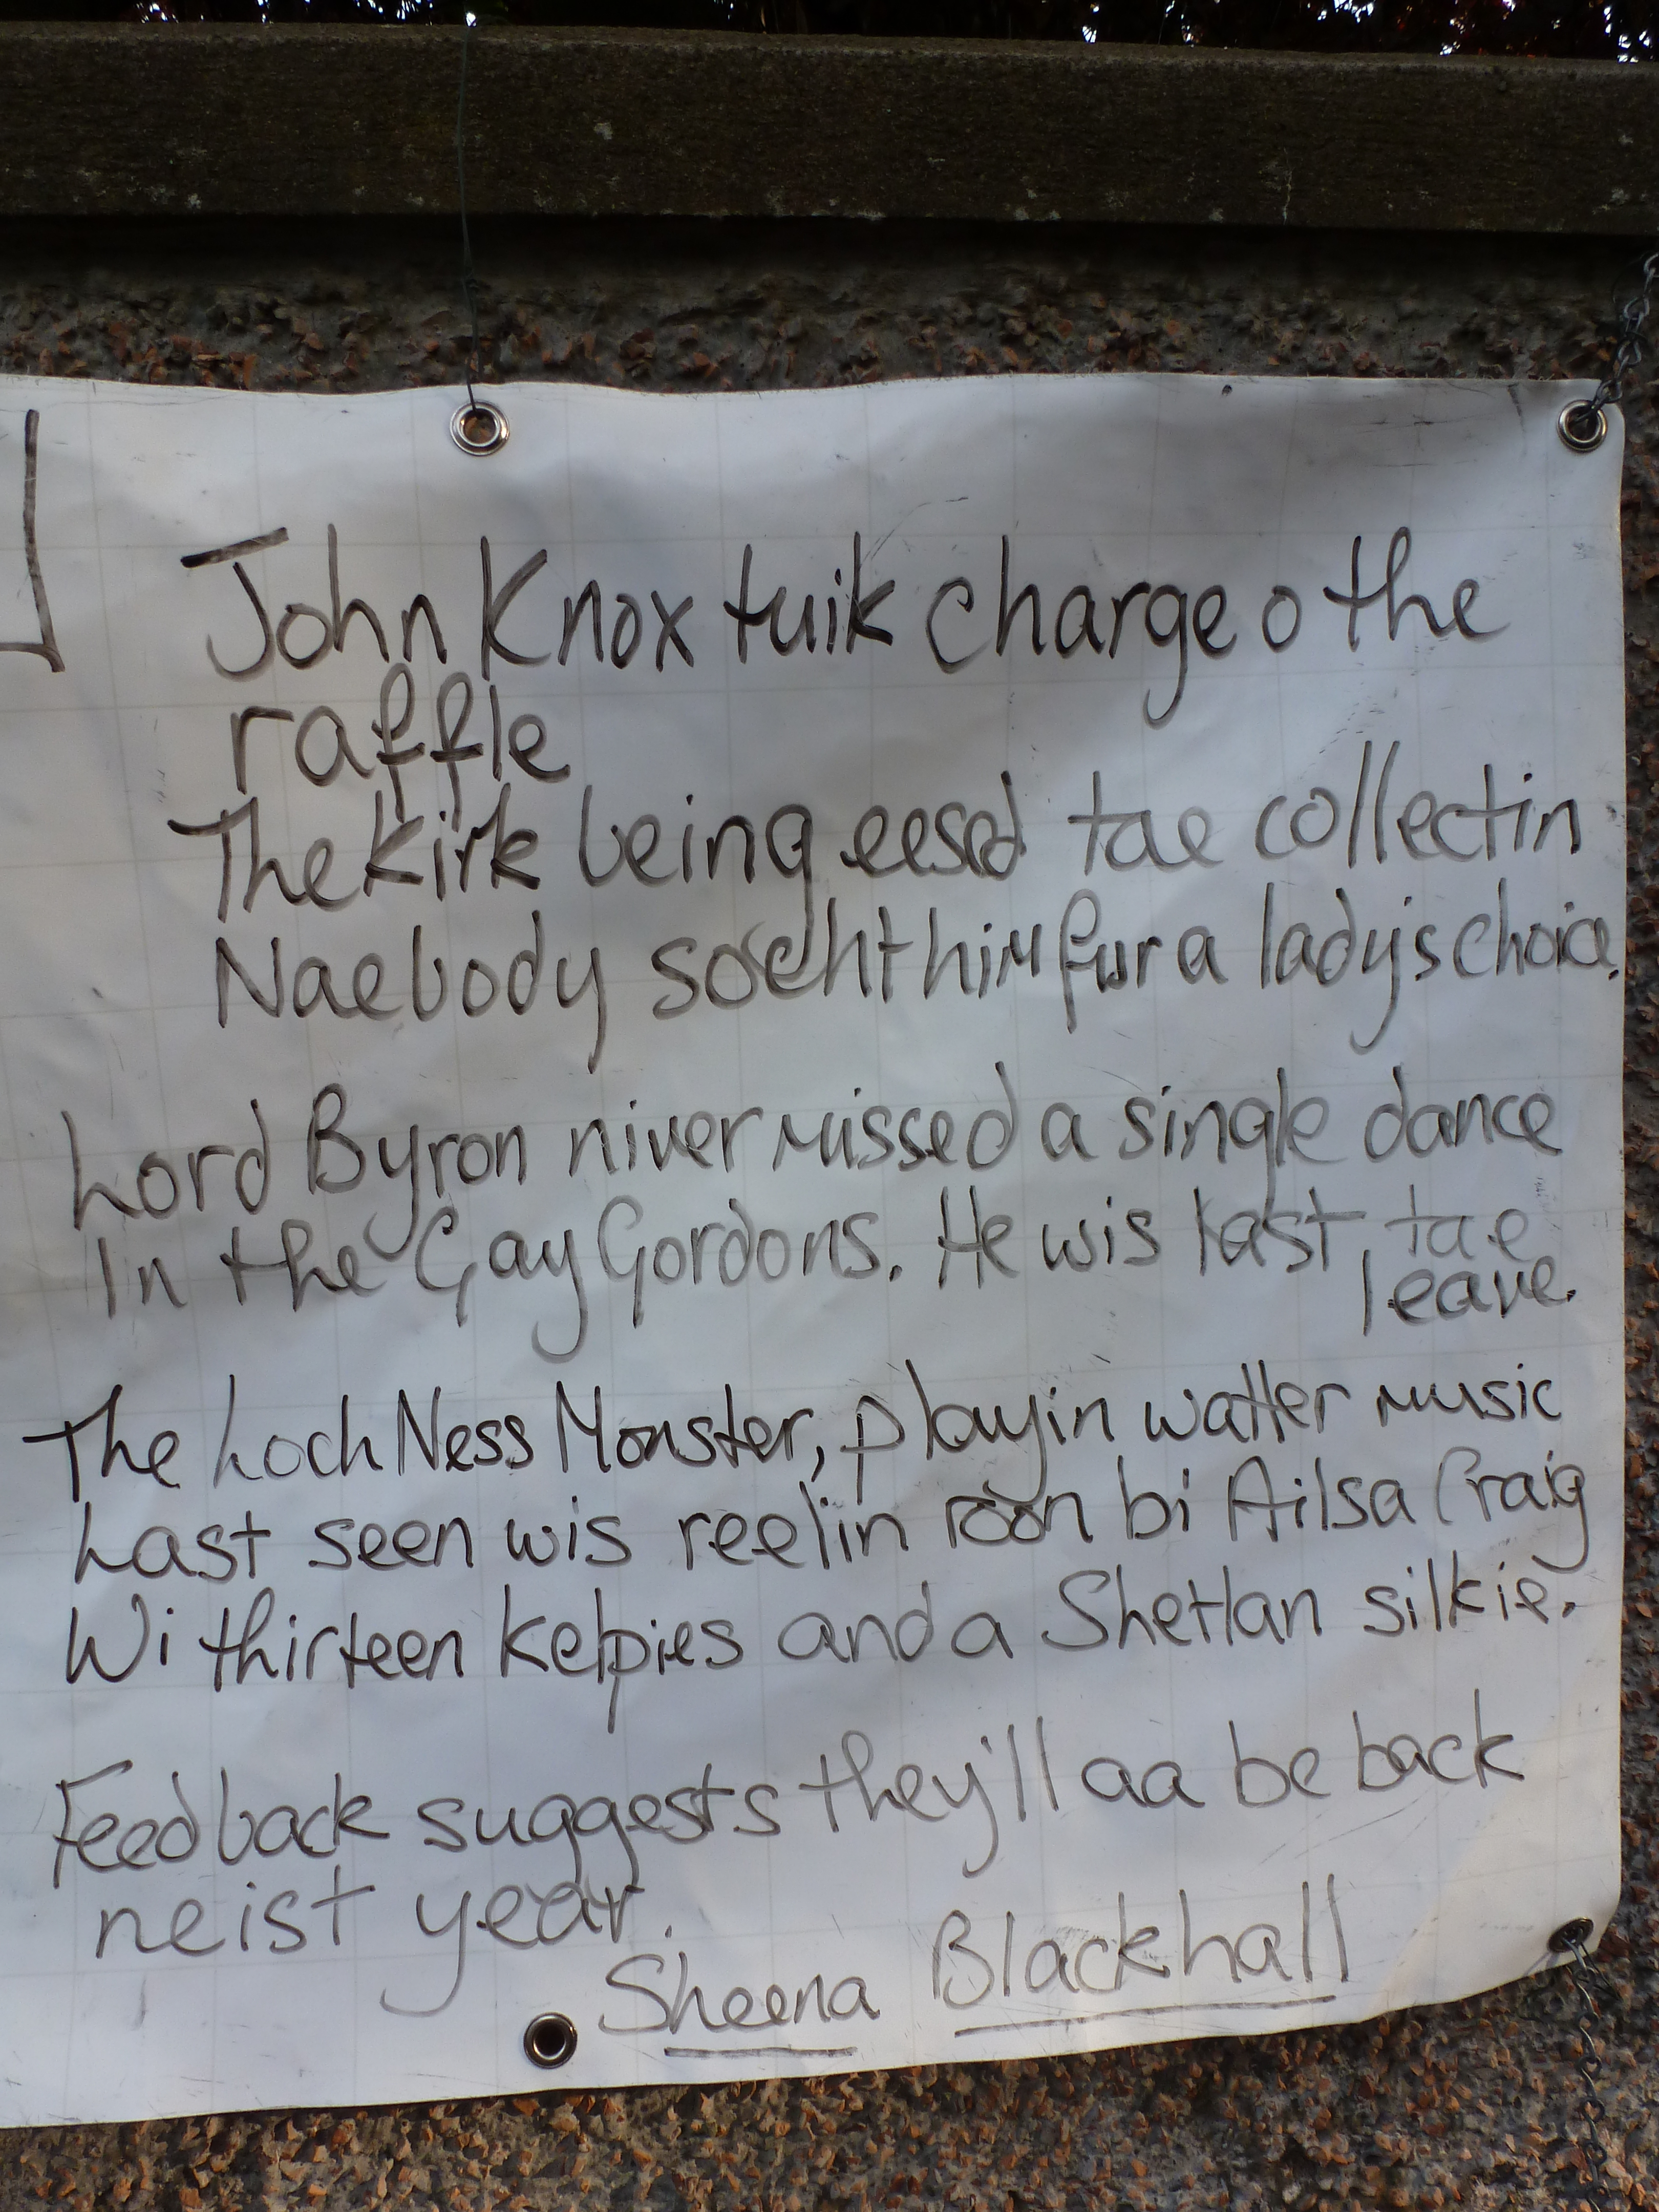 John Knox tuik charge o the
raffle
The Kirk being eesed tae collectin
Naebody socht him fur a lady's choice.
Lord Byron niver missed a single dance
In the Gay Gordons. He wis last, tae
leave.
The Loch Ness Monster, playin watter music
Last seen wis reelin roon bi Ailsa Craig
Wi thirteen kelpies and a Shetlan silkie.
Feedback suggests they'll aa be back
neist year.
Sheena Blackhall